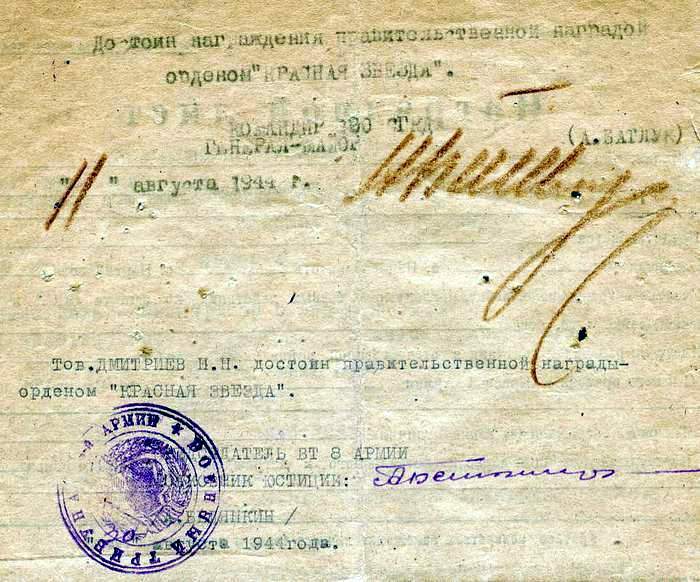 Достоин награждения правительственной наградой
орденом "КРАСНАЯ ЗВЕЗДА".
КОМАНДИР
ГЕНЕРАЛ-МАЙОР
"11" августа 1944 г.
Тов.ДМИТРИЕВ И.Н. достоин правительственной награды-
орденом "КРАСНАЯ ЗВЕЗДА".
ВТ 8 АРМИИ
ЮСТИЦИИ:
августа 1944года.
АРМИИ ★ ВОЕННЫЙ ТРИБУНА